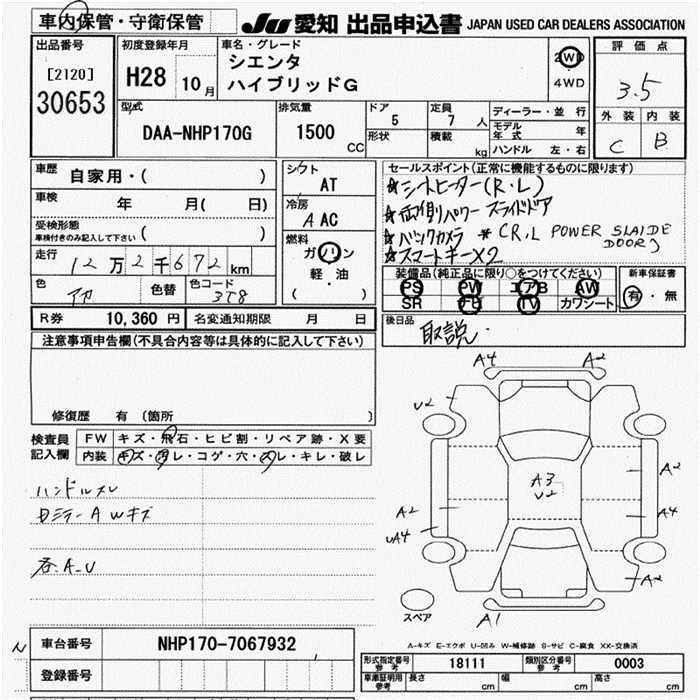 車内保管・守衛保管
JU 愛知 出品申込書 JAPAN USED CAR DEALERS ASSOCIATION
出品番号
[2120]
30653
初度登録年月
H28 10月
車名・グレード
シエンタ
ハイブリッドG
2WD
4WD
評価点
3.5
外装 内装
C B
型式
DAA-NHP170G
排気量
1500 CC
ドア
5
定員
7 人
形状
積載
kg
ディーラー・並行
モデル年式 年
ハンドル 左・右
車歴
自家用・( )
車検
年 月( 日)
受検形態
車検付きのみ記入して下さい ( )
走行
12万2千672km
色
アカ
色替
色コード
3T8
シフト
AT
冷房
A AC
燃料
ガソリン
軽・油
( )
R券 10,360 円 名変通知期限 月 日
セールスポイント(正常に機能するものに限ります)
★シートヒーター(R・L)
★両側パワースライドドア
★バックカメラ ※CR,L POWER SLAIDE
DOOR)
★スマートキーX2
装備品(純正品に限り○をつけてください)
PS PW エアB AW
SR ナビ TV カワシート
新車保証書
有・無
後日品
取説・
注意事項申告欄(不具合内容等は具体的に記入して下さい)
修復歴 有(箇所 )
検査員記入欄
FW キズ・飛石・ヒビ割・リペア跡・X要
内装 キズ・汚レ・コゲ・穴・スレ・キレ・破レ
ハンドルスレ
Awキズ
各A.U
A4 A2
U2
A3
U2
A2
A2
A4
UA4
A2
A1
スペア
A-キズ E-エクボ U-凹み W-補修跡 S-サビ C-腐食 XX-交換済
N
車台番号 NHP170-7067932
登録番号
型式指定番号 参考 18111 類別区分番号 参考 0003
車庫証明用 参考 長さ cm 幅 cm 高さ cm